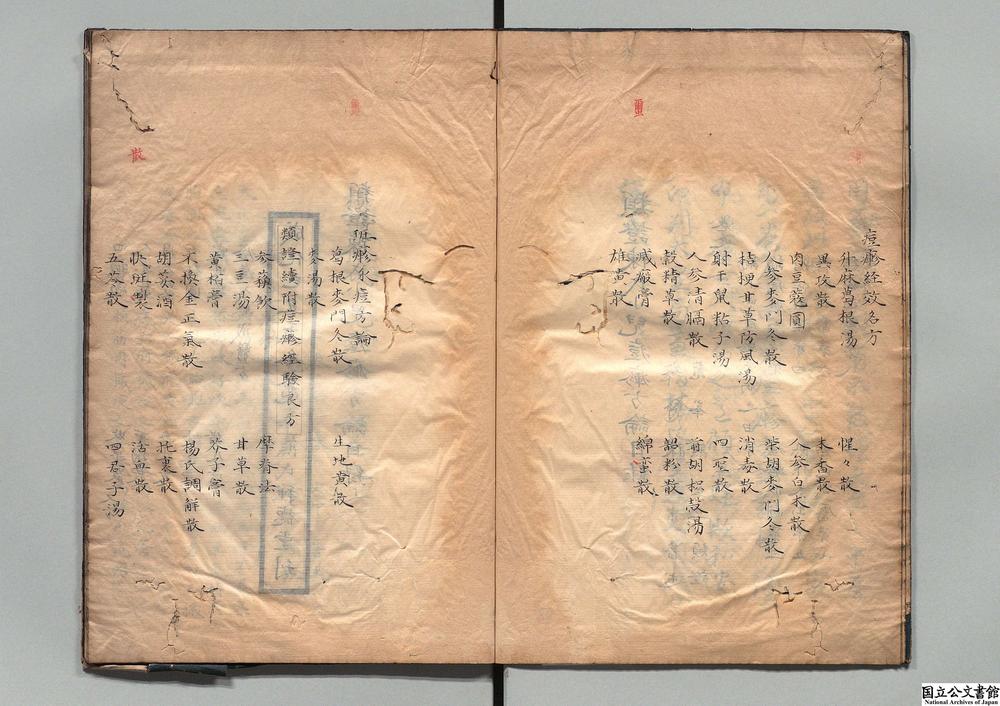 痘疹経效名方
升麻葛根湯
惺々散
異攻散
木香散
肉豆蔻圓
人參白术散
人參麥門冬散
柴胡麥門冬散
桔梗甘草防風湯
消毒散
射干鼠粘子湯
四聖散
人參清膈散
前胡枳殼湯
穀精草散
韶粉散
滅瘢膏
綿蠒散
雄黄散
斑疹水痘方論
葛根麥門冬散
生地黄散
麥湯散
類證續附痘疹經驗良方
參蘇飲
摩脊法
三豆湯
甘草散
黄柏膏
芥子膏
不換金正氣散
楊氏調解散
胡荽酒
托裏散
快斑散
活血散
五苓散
四君子湯
散
国立公文書館
National Archives of Japan